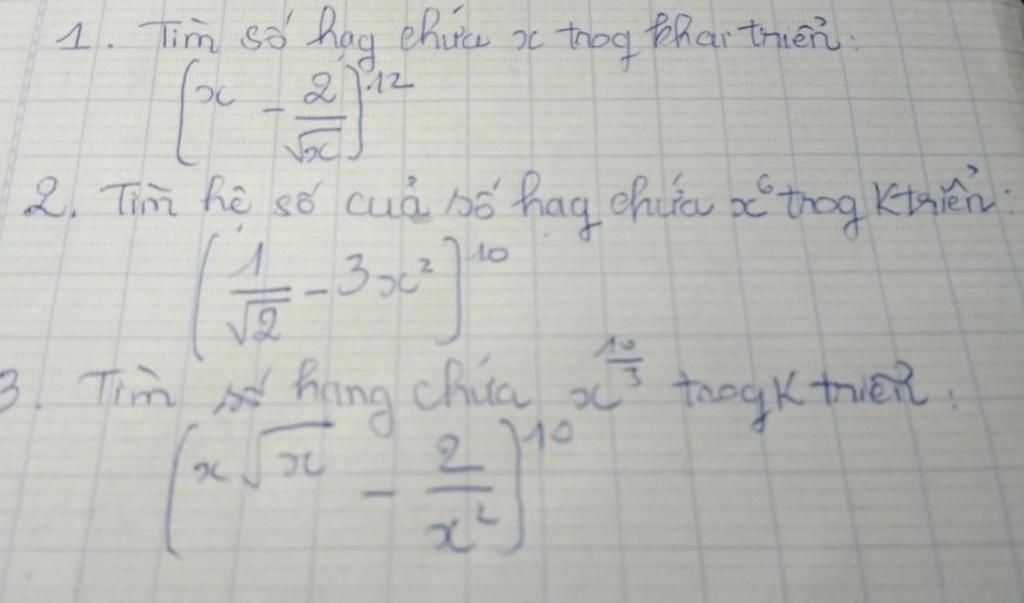 1. Tìm số hạg chứa x trog khai triển:
[x - 2/√x]^12
2. Tìm hệ số của số hạg chứa x^6 trog K triển:
[1/√2 - 3x²]^10
3. Tìm số hạng chứa x^(10/3) trog K triển:
[x√x - 2/x²]^10